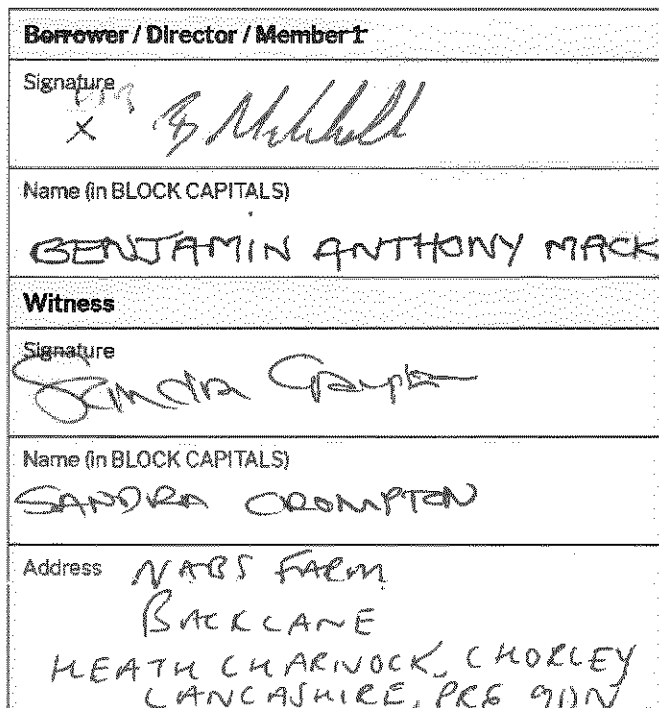 Borrower / Director / Member 1
Signature
X
Name (in BLOCK CAPITALS)
BENJAMIN ANTHONY MACK
Witness
Signature
Sandra
Name (in BLOCK CAPITALS)
SANDRA CROMPTON
Address NABS FARM
BACK LANE
HEATH CHARNOCK, CHORLEY
LANCASHIRE, PR6 9DN